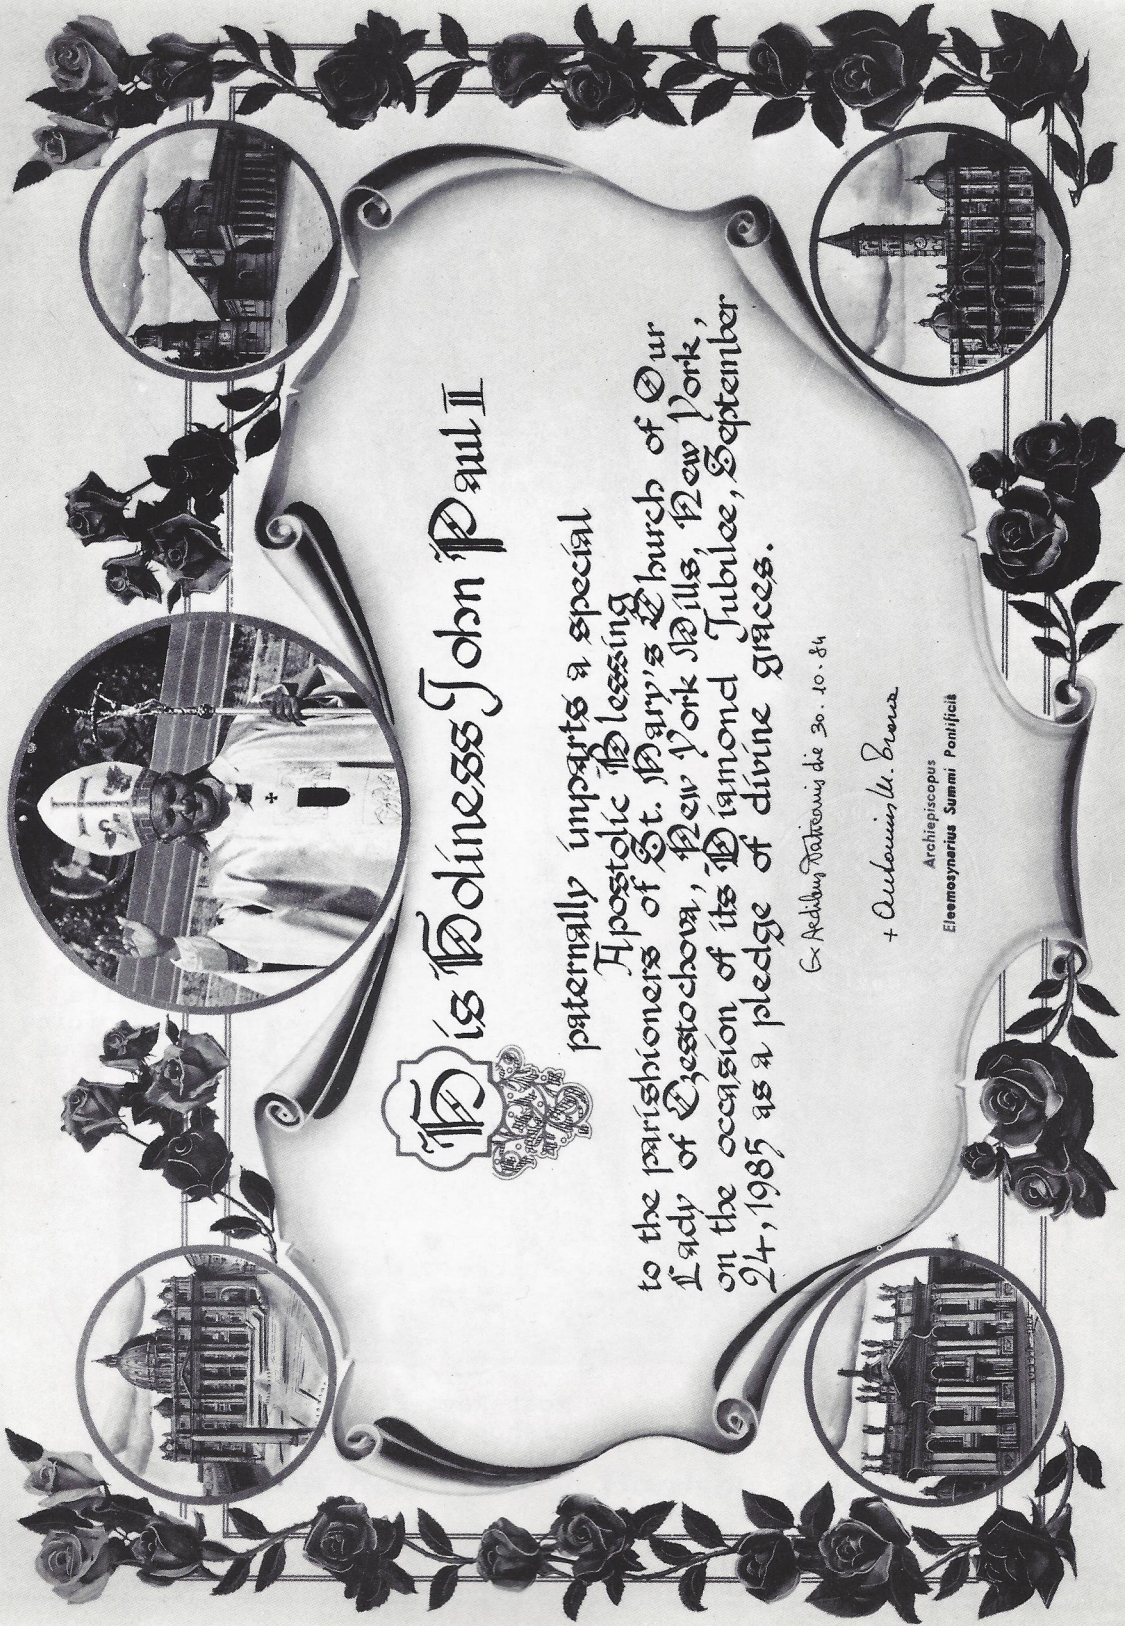 His Holiness John Paul II
paternally imparts a special
Apostolic Blessing
to the parishioners of St. Mary's Church of Our
Lady of Czestochova, New York Mills, New York,
on the occasion of its Diamond Jubilee, September
24, 1985 as a pledge of divine graces.
Ex Aedibus Vaticanis die 30. 10. 84
+ Antonius M.
Archiepiscopus
Eleemosynarius Summi Pontificis